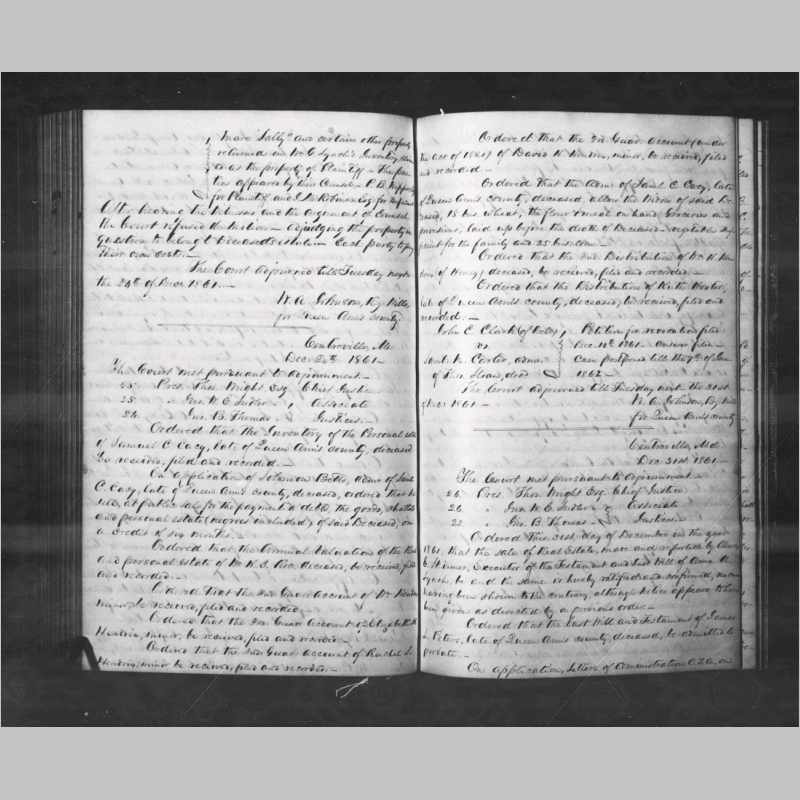 made Sally and certain other property
returned in Wm C Lynch's Inventory
as the property of Plaintiff — The par
ties appeared by their Counsel P. B. Hopper
for Plaintiff and Esq. for Defendant
After hearing the Witnesses and the argument of Counsel
the Court refused the Petition — Adjudging the property in
question to belong to Deceased's estate — Each party to pay
their own costs. —
The Court adjourned till Tuesday next
the 24th of Decr 1861 —
W. A. Johnson, Reg Wills
for Queen Ann's County.
Centreville, Md
Decr 24th 1861 —
The Court met pursuant to adjournment —
25 Prest. Thos. Wright Esq Chief Justice
25 " Jno. W. E. Sudler " Associate
24 " Jno. B. Thomas " Justices. —
Ordered that the Inventory of the Personal
of Samuel C. Cacy, late of Queen Ann's county, deceased
be received, filed and recorded. —
On application of Solomon Betts, Admr of Saml
C. Cacy, late of Queen Ann's county, deceased, ordered that he
sell, at public sale for the payment of debts, the goods, chattels
and personal estate (negroes included) of said Deceased, on
a credit of six months. —
Ordered that the Annual Valuations of the Real
and personal estate of Wm H. S. deceased, be received, filed
and recorded. —
Ordered that the 3rd Guar. account of Wm
minor, be received, filed and recorded.
Ordered that the 3rd Guar. account of Elizabeth
minor, be received, filed and recorded —
Ordered that the 3rd Guar. account of Rachel
minor be received, filed and recorded. —
Ordered that the 3rd Guar account (under
the act of 1861) of David minor, be received, filed
and recorded. —
Ordered that the Admr of Saml C. Cacy, late
of Queen Ann's county, deceased, allow the Widow of said De
ceased, 15 bus. wheat, the flour & meat on hand, Groceries and
provisions, laid up before the death of Deceased — vegetables suf
ficient for the family and 25 bus corn —
Ordered that the 2nd Distribution of Wm H.
(of Henry) deceased, be received, filed and recorded. —
Ordered that the Distribution of
late of Queen Ann's county, deceased, be received, filed and
recorded. —
John C. Clark (of Jas) Petition for revocation filed
vs. Decr 14th 1861 — Answer filed
Saml N. Carter, admr Case postponed till the 7th of Jan
of decd 1862 —
The Court adjourned till Tuesday next the 31st
of Decr 1861 —
W. A. Johnson, Reg Wills
for Queen Ann's county
Centreville, Md.
Dec. 31st 1861
The Court met pursuant to Adjournment —
26 Prest. Thos. Wright Esq Chief Justice
26 " Jno. W. E. Sudler " Associate
25 " Jno. B. Thomas " Justices —
Ordered this 31st day of December in the year
1861, that the sale of Real Estate, made and reported by
Skinner, Executor of the Testament and last Will of Anna
Lynch, be and the same is hereby ratified and confirmed, no cause
having been shown to the contrary, although notice appears to have
been given as directed by a previous order —
Ordered that the Last Will and Testament of James
Peters, late of Queen Ann's county, deceased, be admitted to
probate. —
On application, Letters of Administration C.T.A. on